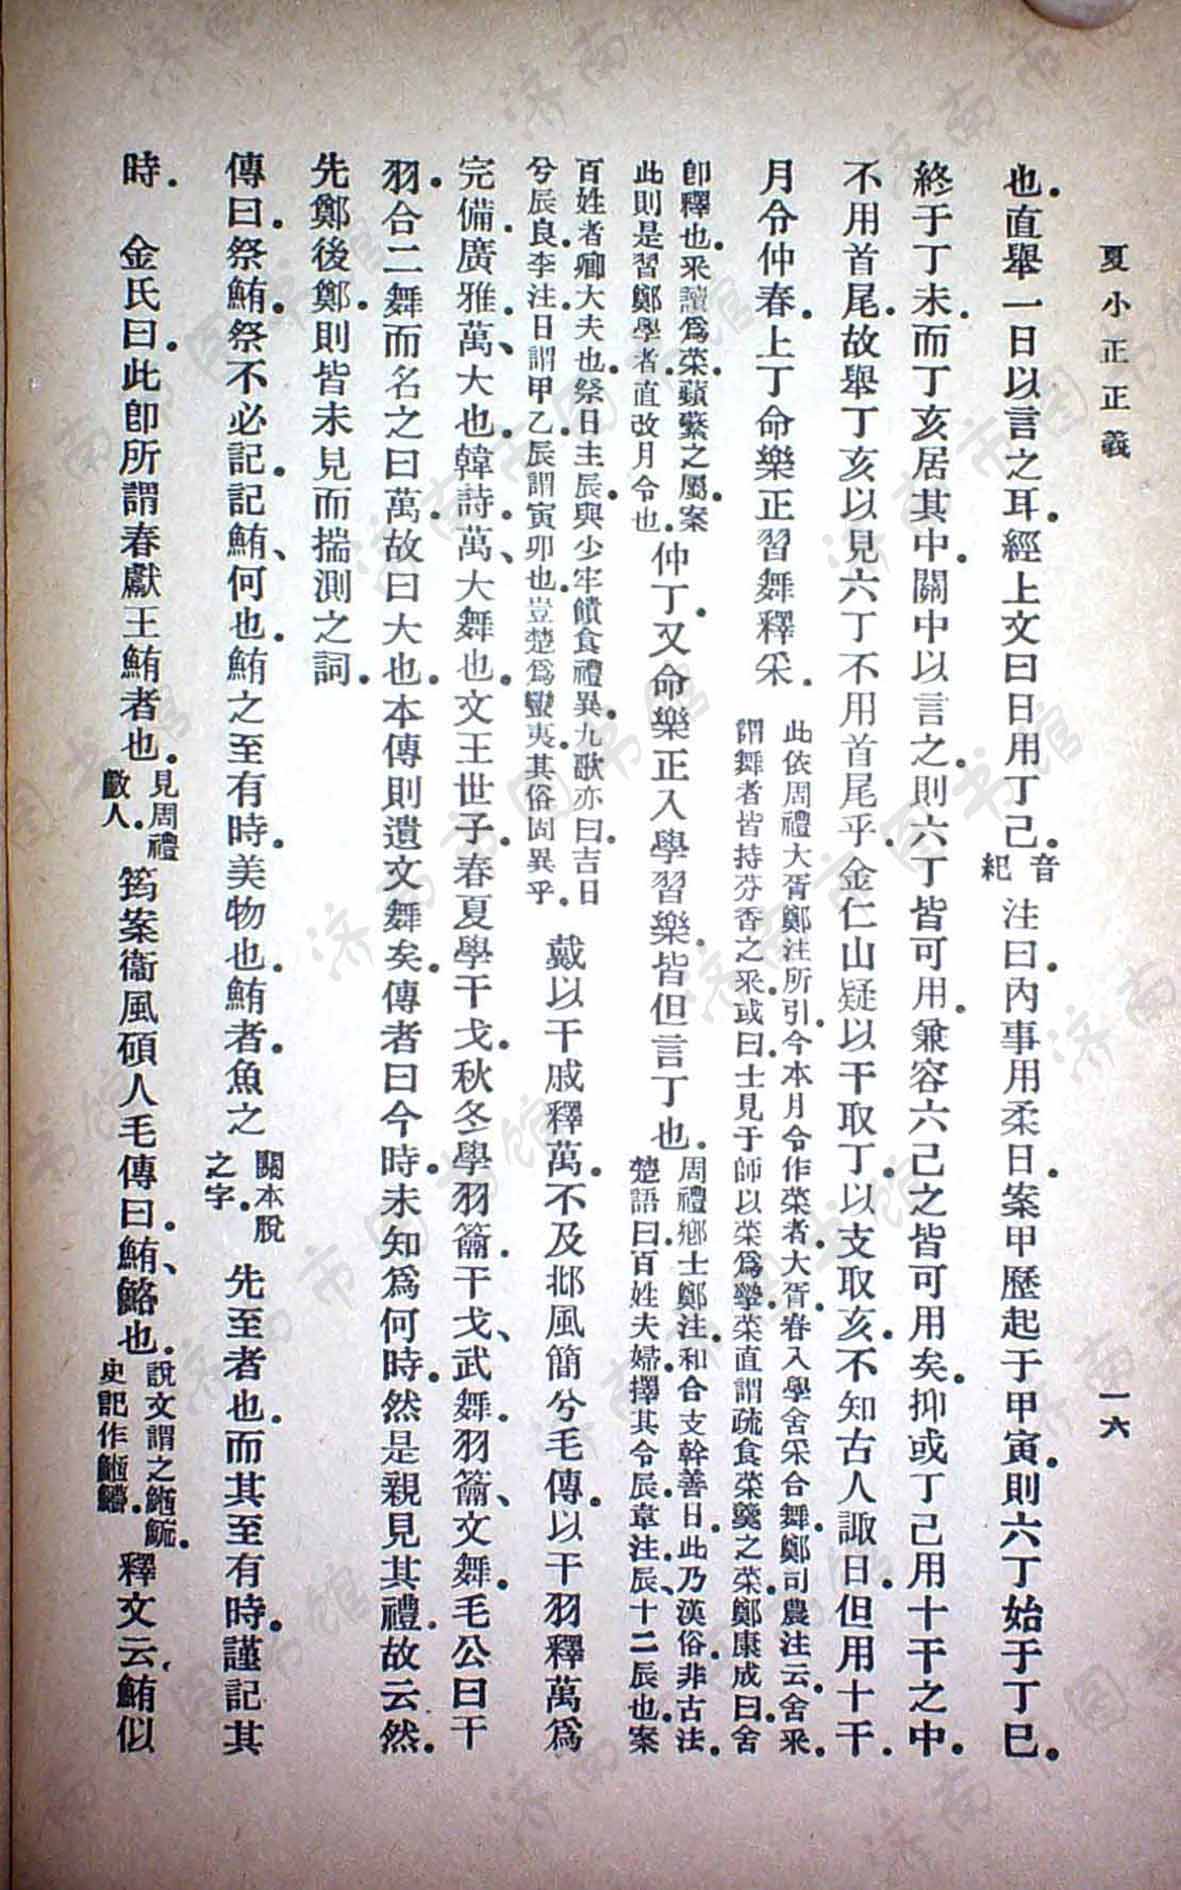 夏小正正義
一六
也。直舉一日以言之耳。經上文曰日用丁己。音紀注曰。內事用柔日。案甲歷起于甲寅。則六丁始于丁巳。
終于丁未。而丁亥居其中。關中以言之。則六丁皆可用。兼容六己之皆可用矣。抑或丁己用十干之中。
不用首尾。故舉丁亥以見六丁不用首尾乎。金仁山疑以干取丁。以支取亥。不知古人諏日。但用十干。
月令仲春。上丁命樂正習舞釋采。此依周禮大胥鄭注所引。今本月令作菜者。大胥。春入學舍采合舞。鄭司農注云。舍采。
謂舞者皆持芬香之采。或曰。士見于師以菜爲摯。菜直謂疏食菜羹之菜。鄭康成曰。舍
即釋也。采讀爲菜。蘋蘩之屬。案
此則是習鄭學者。直改月令也。仲丁。又命樂正入學習樂。皆但言丁也。周禮鄉士鄭注。和合支幹善日。此乃漢俗。非古法。
楚語曰。百姓夫婦。擇其令辰。韋注、辰、十二辰也。案
百姓者。卿大夫也。祭日主辰。與少牢饋食禮異。九歌亦曰。吉日
兮辰良。李注。日謂甲乙。辰謂寅卯也。豈楚爲蠻夷。其俗固異乎。戴以干戚釋萬。不及邶風簡兮毛傳。以干羽釋萬爲
完備。廣雅、萬、大也。韓詩、萬、大舞也。文王世子。春夏學干戈。秋冬學羽籥。干戈、武舞。羽籥、文舞。毛公曰。干
羽。合二舞而名之曰萬。故曰大也。本傳則遺文舞矣。傳者曰今時。未知爲何時。然是親見其禮。故云然。
先鄭後鄭。則皆未見而揣測之詞。
傳曰。祭鮪。祭不必記。記鮪、何也。鮪之至有時。美物也。鮪者。魚之關本脫之字。先至者也。而其至有時。謹記其
時。金氏曰。此卽所謂春獻王鮪者也。見周禮䱷人。筠案衞風碩人毛傳曰。鮪、鮥也。說文謂之䱎鮔。史記作䱎鰽。釋文云。鮪似